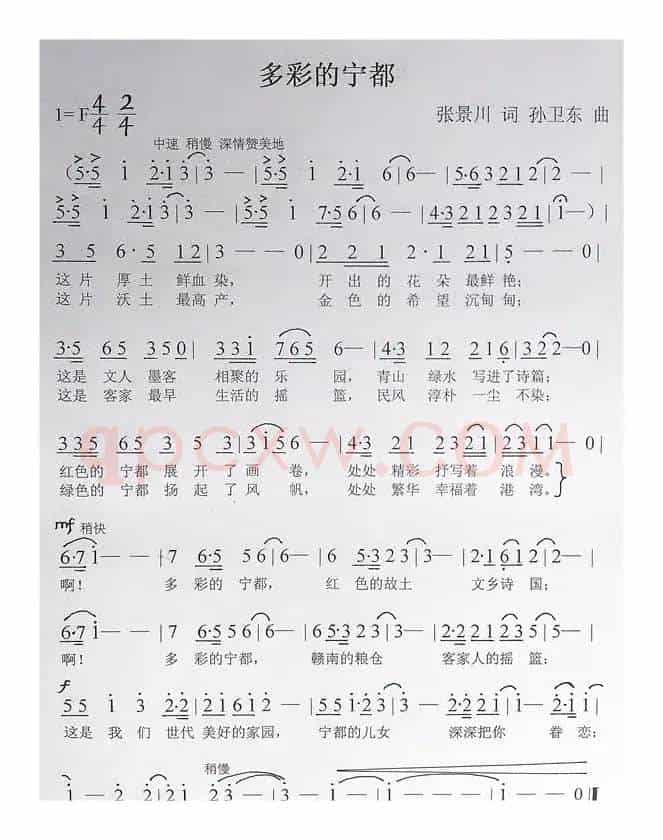 多彩的宁都
1=F 4/4 2/4 张景川 词 孙卫东 曲
中速 稍慢 深情赞美地
(5·5 1 2·1 3|3 — —|5·5 1 2·1 6|6 — —|5·6 3 2 1 2|2 — —|
5·5 1 2·1 3|3 — —|5·5 1 7·5 6|6 — —|4·3 2 1 2 3 2 1|1 —)|
3 5 6·5 1 2|3 — — 0|2 2 1 2·1 2 1|5 — — 0|
这片 厚土 鲜血染, 开出的花朵 最鲜艳;
这片 沃土 最高产, 金色的希望 沉甸甸;
3·5 6 5 3 5 0|3 3 1 7 6 5 6 —|4·3 2 2 1 2 1 6|3 2 2 — 0|
这是 文人 墨客 相聚的乐 园, 青山 绿水 写进了诗篇;
这是 客家 最早 生活的摇 篮, 民风 淳朴 一尘 不染;
qpcxw.COM
红色的 宁都 展 开了画 卷, 处处 精彩 抒写着 浪 漫。
绿色的 宁都 扬 起了风 帆, 处处 繁华 幸福着 港 湾。
mf 稍快
6·7 1 — —|7 6·5 5 6|6 — —|6 5·3 2 3|3 — —|2·1 6 1 2|2 — —|
啊! 多 彩的 宁都, 红 色的故土 文乡诗 国;
6·7 1 — —|7 6·5 5 2 6|6 — —|3 5·3 2 3|3 — —|2·2 2 1 5|5 — —|
啊! 多 彩的宁都, 赣南的粮仓 客家人的摇 篮;
f
这是 我 们 世代 美好的家园, 宁都的儿女 深深把你 眷 恋;
稍慢